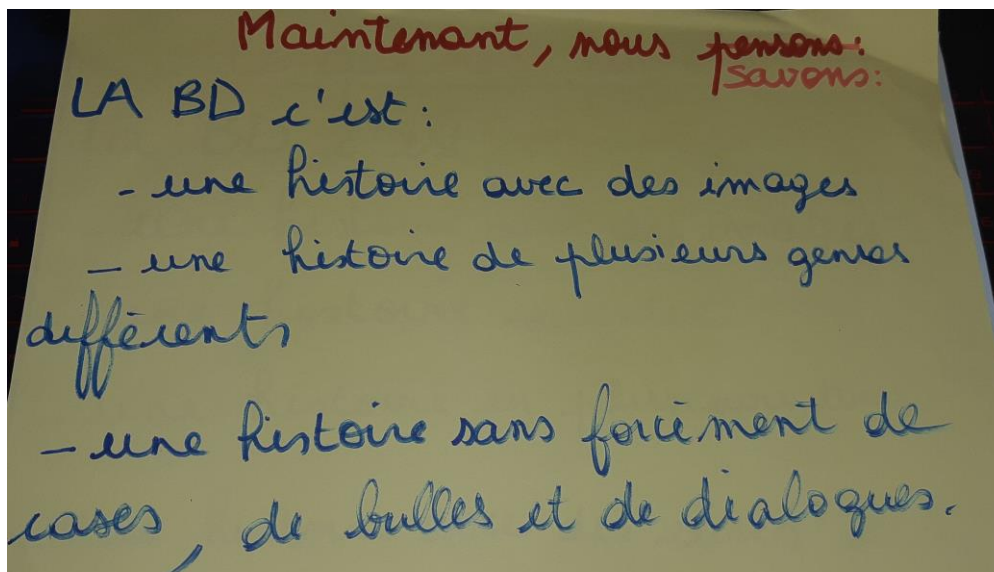 Maintenant, nous pensons:
savons:
LA BD c'est:
- une histoire avec des images
- une histoire de plusieurs genres
différents
- une histoire sans forcément de
cases, de bulles et de dialogues.